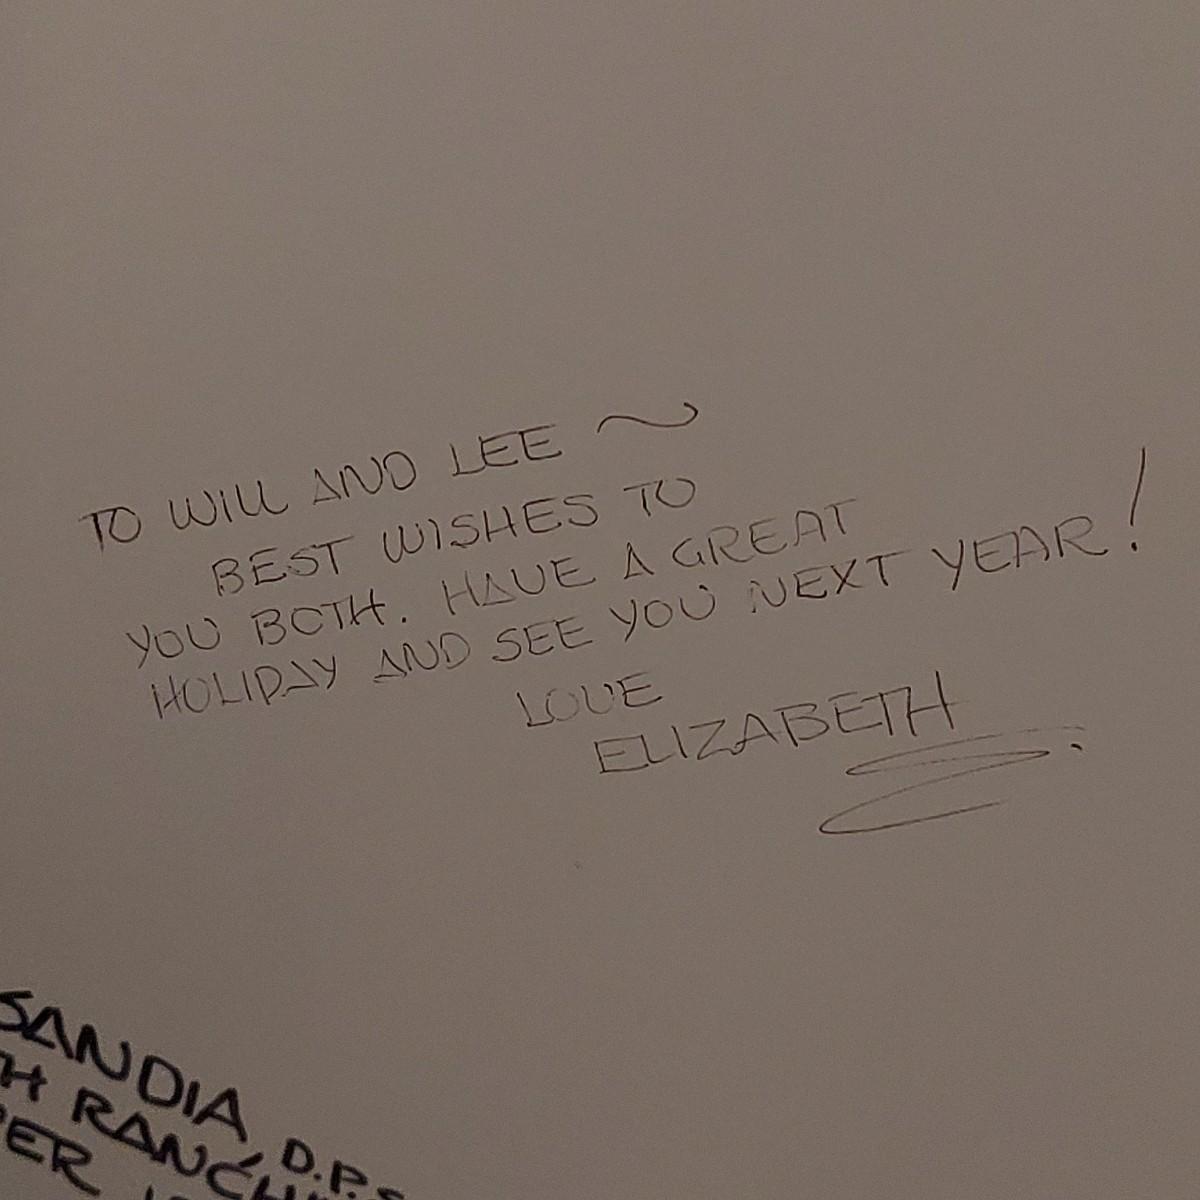 TO WILL AND LEE ~
BEST WISHES TO
YOU BOTH. HAVE A GREAT
HOLIDAY AND SEE YOU NEXT YEAR!
LOVE
ELIZABETH
SANDIA
D.P.S